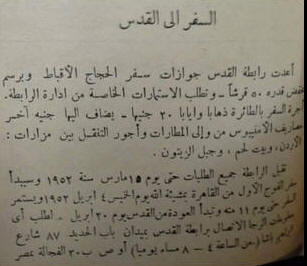 السفر الى القدس
أعدت رابطة القدس جوازات سفر الحجاج الأقباط وبرسم
مخفض قدره ٥٠ قرشاً ـ وتطلب الاستمارات الخاصة من ادارة الرابطة.
أجرة السفر بالطائرة ذهابا وايابا ٢٠ جنيها ـ يضاف اليها جنيه آخر
مصاريف الأتوبيس من والى المطارات وأجور التنقل بين مزارات :
الأردن، وبيت لحم ، وجبل الزيتون .
تقبل الرابطة جميع الطلبات حتى يوم ١٥ مارس سنة ١٩٥٢ وسيبدأ
سفر الفوج الأول من القاهرة بمشيئة الله يوم الخميس ٤ ابريل ١٩٥٢ ويستمر
السفر حتى يوم ١١ منه وتبدأ العودة من القدس يوم ٢٠ ابريل . اطلب أى
الرجا الاتصال برابطة القدس بميدان باب الحديد ٨٧ شارع
ابراهيم باشا (من الساعة ٤ ـ ٨ مساء يوميا) أو ص ب ٣٠ الفجالة مصر